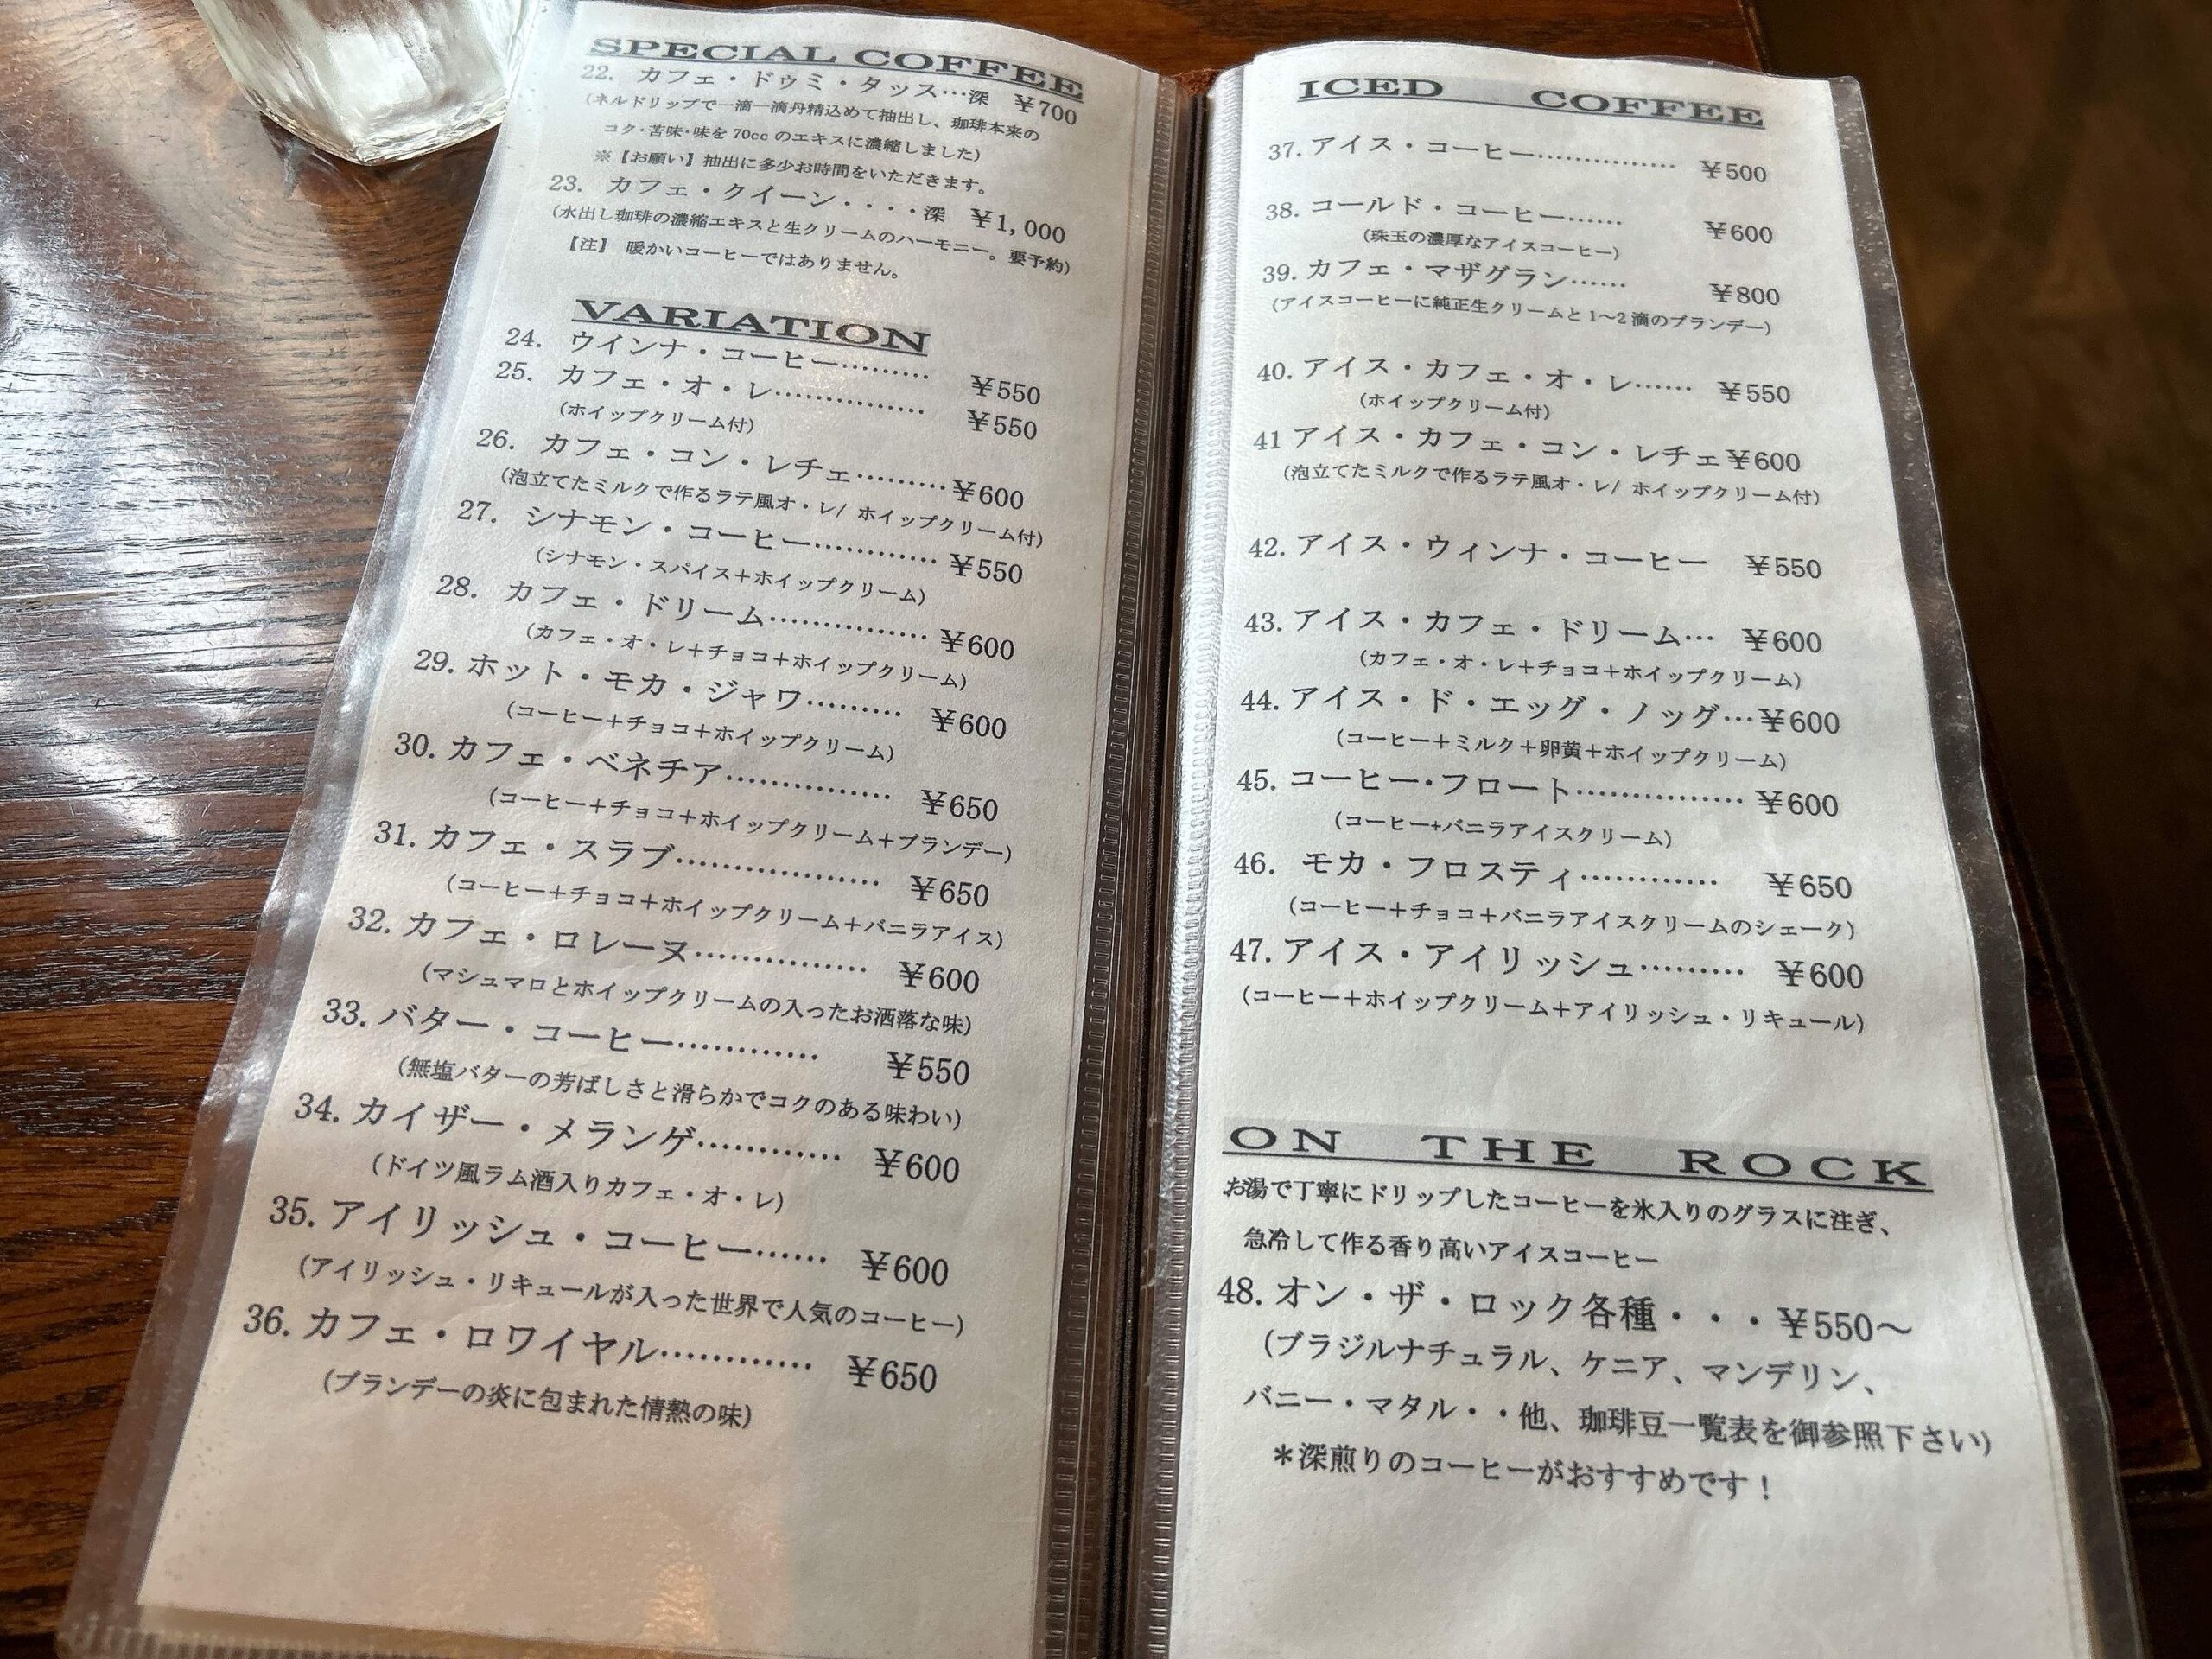 SPECIAL COFFEE
22. カフェ・ドゥミ・タッス…深 ￥700
(ネルドリップで一滴一滴丹精込めて抽出し、珈琲本来の
コク・苦味・味を 70cc のエキスに濃縮しました)
※【お願い】抽出に多少お時間をいただきます。
23. カフェ・クイーン....深 ￥1,000
(水出し珈琲の濃縮エキスと生クリームのハーモニー。要予約)
【注】 暖かいコーヒーではありません。
VARIATION
24. ウインナ・コーヒー……… ￥550
25. カフェ・オ・レ…………… ￥550
(ホイップクリーム付)
26. カフェ・コン・レチェ………￥600
(泡立てたミルクで作るラテ風オ・レ/ ホイップクリーム付)
27. シナモン・コーヒー………… ￥550
(シナモン・スパイス＋ホイップクリーム)
28. カフェ・ドリーム…………… ￥600
(カフェ・オ・レ＋チョコ＋ホイップクリーム)
29. ホット・モカ・ジャワ……… ￥600
(コーヒー＋チョコ＋ホイップクリーム)
30. カフェ・ベネチア…………… ￥650
(コーヒー＋チョコ＋ホイップクリーム＋ブランデー)
31. カフェ・スラブ………………… ￥650
(コーヒー＋チョコ＋ホイップクリーム＋バニラアイス)
32. カフェ・ロレーヌ…………… ￥600
(マシュマロとホイップクリームの入ったお洒落な味)
33. バター・コーヒー………… ￥550
(無塩バターの芳ばしさと滑らかでコクのある味わい)
34. カイザー・メランゲ………… ￥600
(ドイツ風ラム酒入りカフェ・オ・レ)
35. アイリッシュ・コーヒー…… ￥600
(アイリッシュ・リキュールが入った世界で人気のコーヒー)
36. カフェ・ロワイヤル………… ￥650
(ブランデーの炎に包まれた情熱の味)
ICED COFFEE
37. アイス・コーヒー…………… ￥500
38. コールド・コーヒー…… ￥600
(珠玉の濃厚なアイスコーヒー)
39. カフェ・マザグラン…… ￥800
(アイスコーヒーに純正生クリームと 1～2 滴のブランデー)
40. アイス・カフェ・オ・レ…… ￥550
(ホイップクリーム付)
41 アイス・カフェ・コン・レチェ￥600
(泡立てたミルクで作るラテ風オ・レ/ ホイップクリーム付)
42. アイス・ウィンナ・コーヒー ￥550
43. アイス・カフェ・ドリーム… ￥600
(カフェ・オ・レ＋チョコ＋ホイップクリーム)
44. アイス・ド・エッグ・ノッグ…￥600
(コーヒー＋ミルク＋卵黄＋ホイップクリーム)
45. コーヒー・フロート……………￥600
(コーヒー+バニラアイスクリーム)
46. モカ・フロスティ………… ￥650
(コーヒー＋チョコ＋バニラアイスクリームのシェーク)
47. アイス・アイリッシュ……… ￥600
(コーヒー＋ホイップクリーム＋アイリッシュ・リキュール)
ON THE ROCK
お湯で丁寧にドリップしたコーヒーを氷入りのグラスに注ぎ、
急冷して作る香り高いアイスコーヒー
48. オン・ザ・ロック各種・・・￥550～
(ブラジルナチュラル、ケニア、マンデリン、
バニー・マタル・・他、珈琲豆一覧表を御参照下さい)
＊深煎りのコーヒーがおすすめです！